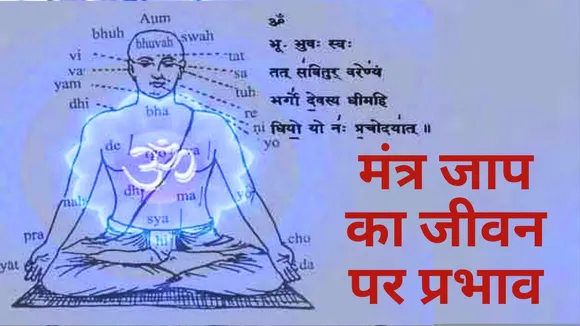 Aum
bhuh
bhuvah
swah
vi
tat
va
sa
yam
tuh
dhi
re
bha
ni
yo
de
va
dhi
ma
yo
nah
sya
hi
pra
cho
yat
da
ॐ
भू- भुवः स्वः
तत् संवितुर् वरेण्यं
भर्गो दे॒वस्य धीमहि
धियो॒ यो नः॑ प्र॒चोदया॑त् ॥
मंत्र जाप
का जीवन
पर प्रभाव